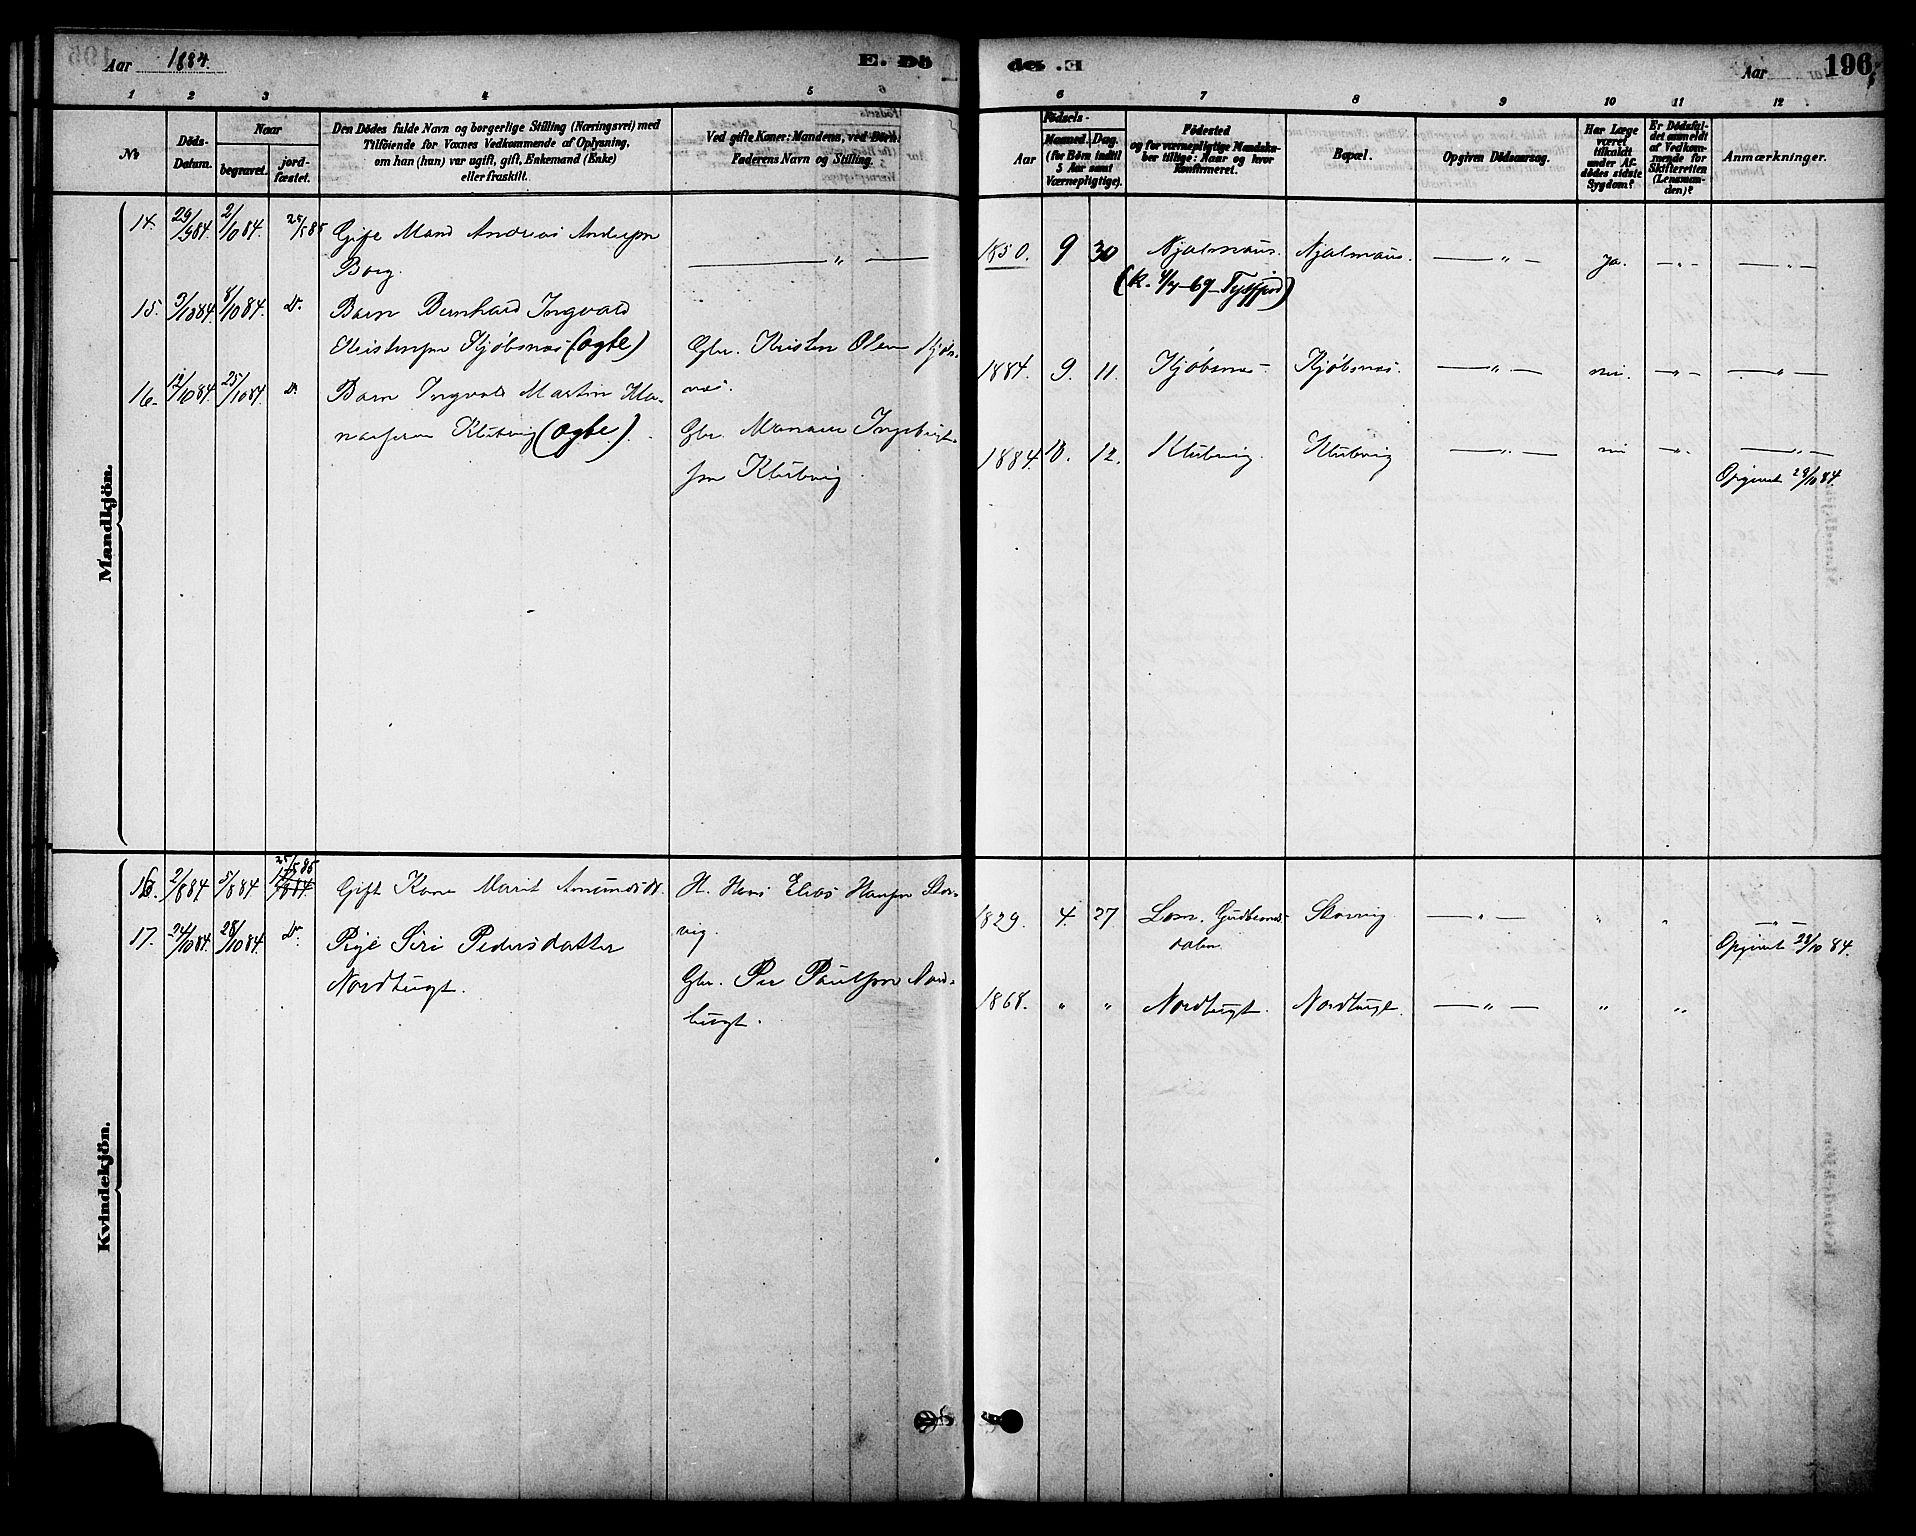 Aar 1884.
E. Dö
de. E
Aar
196.
1 2 3 4 5 6
6 7 8 9 10 11 12
No
Döds-
Datum.
Naar
begravet.
jord-
fæstet.
Den Dödes fulde Navn og borgerlige Stilling (Næringsvei) med
Tilföiende for Voxnes Vedkommende af Oplysning,
om han (hun) var ugift, gift, Enkemand (Enke)
eller fraskilt.
Ved gifte Koner: Mandens, ved Börn:
Faderens Navn og Stilling.
Födsels-
Aar
Maaned.
Dag.
(for Börn indtil
5 Aar samt
Værnepligtige).
Födested
og for værnepligtige Mandska-
ber tillige: Naar og hvor
konfirmeret.
Bopæl.
Opgiven Dödsaarsag.
Har Læge
været
tilkaldt
under Af-
dödes sidste
Sygdom?
Er Dödsfal-
det anmeldt
af Vedkom-
mende for
Skifteretten
(Lensman-
den)?
Anmærkninger.
Mandkjön.
14. 29/9 84. 2/10 84. 25/5 85 Gift Mand Andreas Andersen
Borg. — " — 1850. 9 30 Njalmaus. Njalmaus. — " — Ja. — " — — " —
(k. 4/7-69 Tysfjord)
15. 3/10 84. 8/10 84. Do. Barn Bernhard Ingvald
Kristensen Kjöbsnæs (Ogbe) Gbr. Kristen Olsen Kjöbs-
næs. 1884. 9. 11. Kjöbsnæs Kjöbsnæs. — " — nei. — " — — " —
16. 12/10 84. 25/10 84. Do. Barn Ingvald Martin
Klubvig (Ogbe). Gbr. Ingebrigt-
sen Klubvig. 1884 10. 12. Klubvig. Klubvig — " — nei — " — — " —
Opgivet 29/10 84.
Kvindekjön.
16. 2/8 84 5/8 84 25/5 85 Gift Kone Marit Amundsdt. H. Hans Elias Hansen Skar-
vig. 1829. 4. 27 Lom. Gudbrands-
dalen. Skarvig. — " — " " — " —
17. 24/10 84. 28/10 84. Do. Pige Siri Pedersdatter
Nordbugt. Gbr. Per Paulsen Nord-
bugt. 1868. " " Nordbugt. Nordbugt. — " — " "
Opgivet 28/10 84.